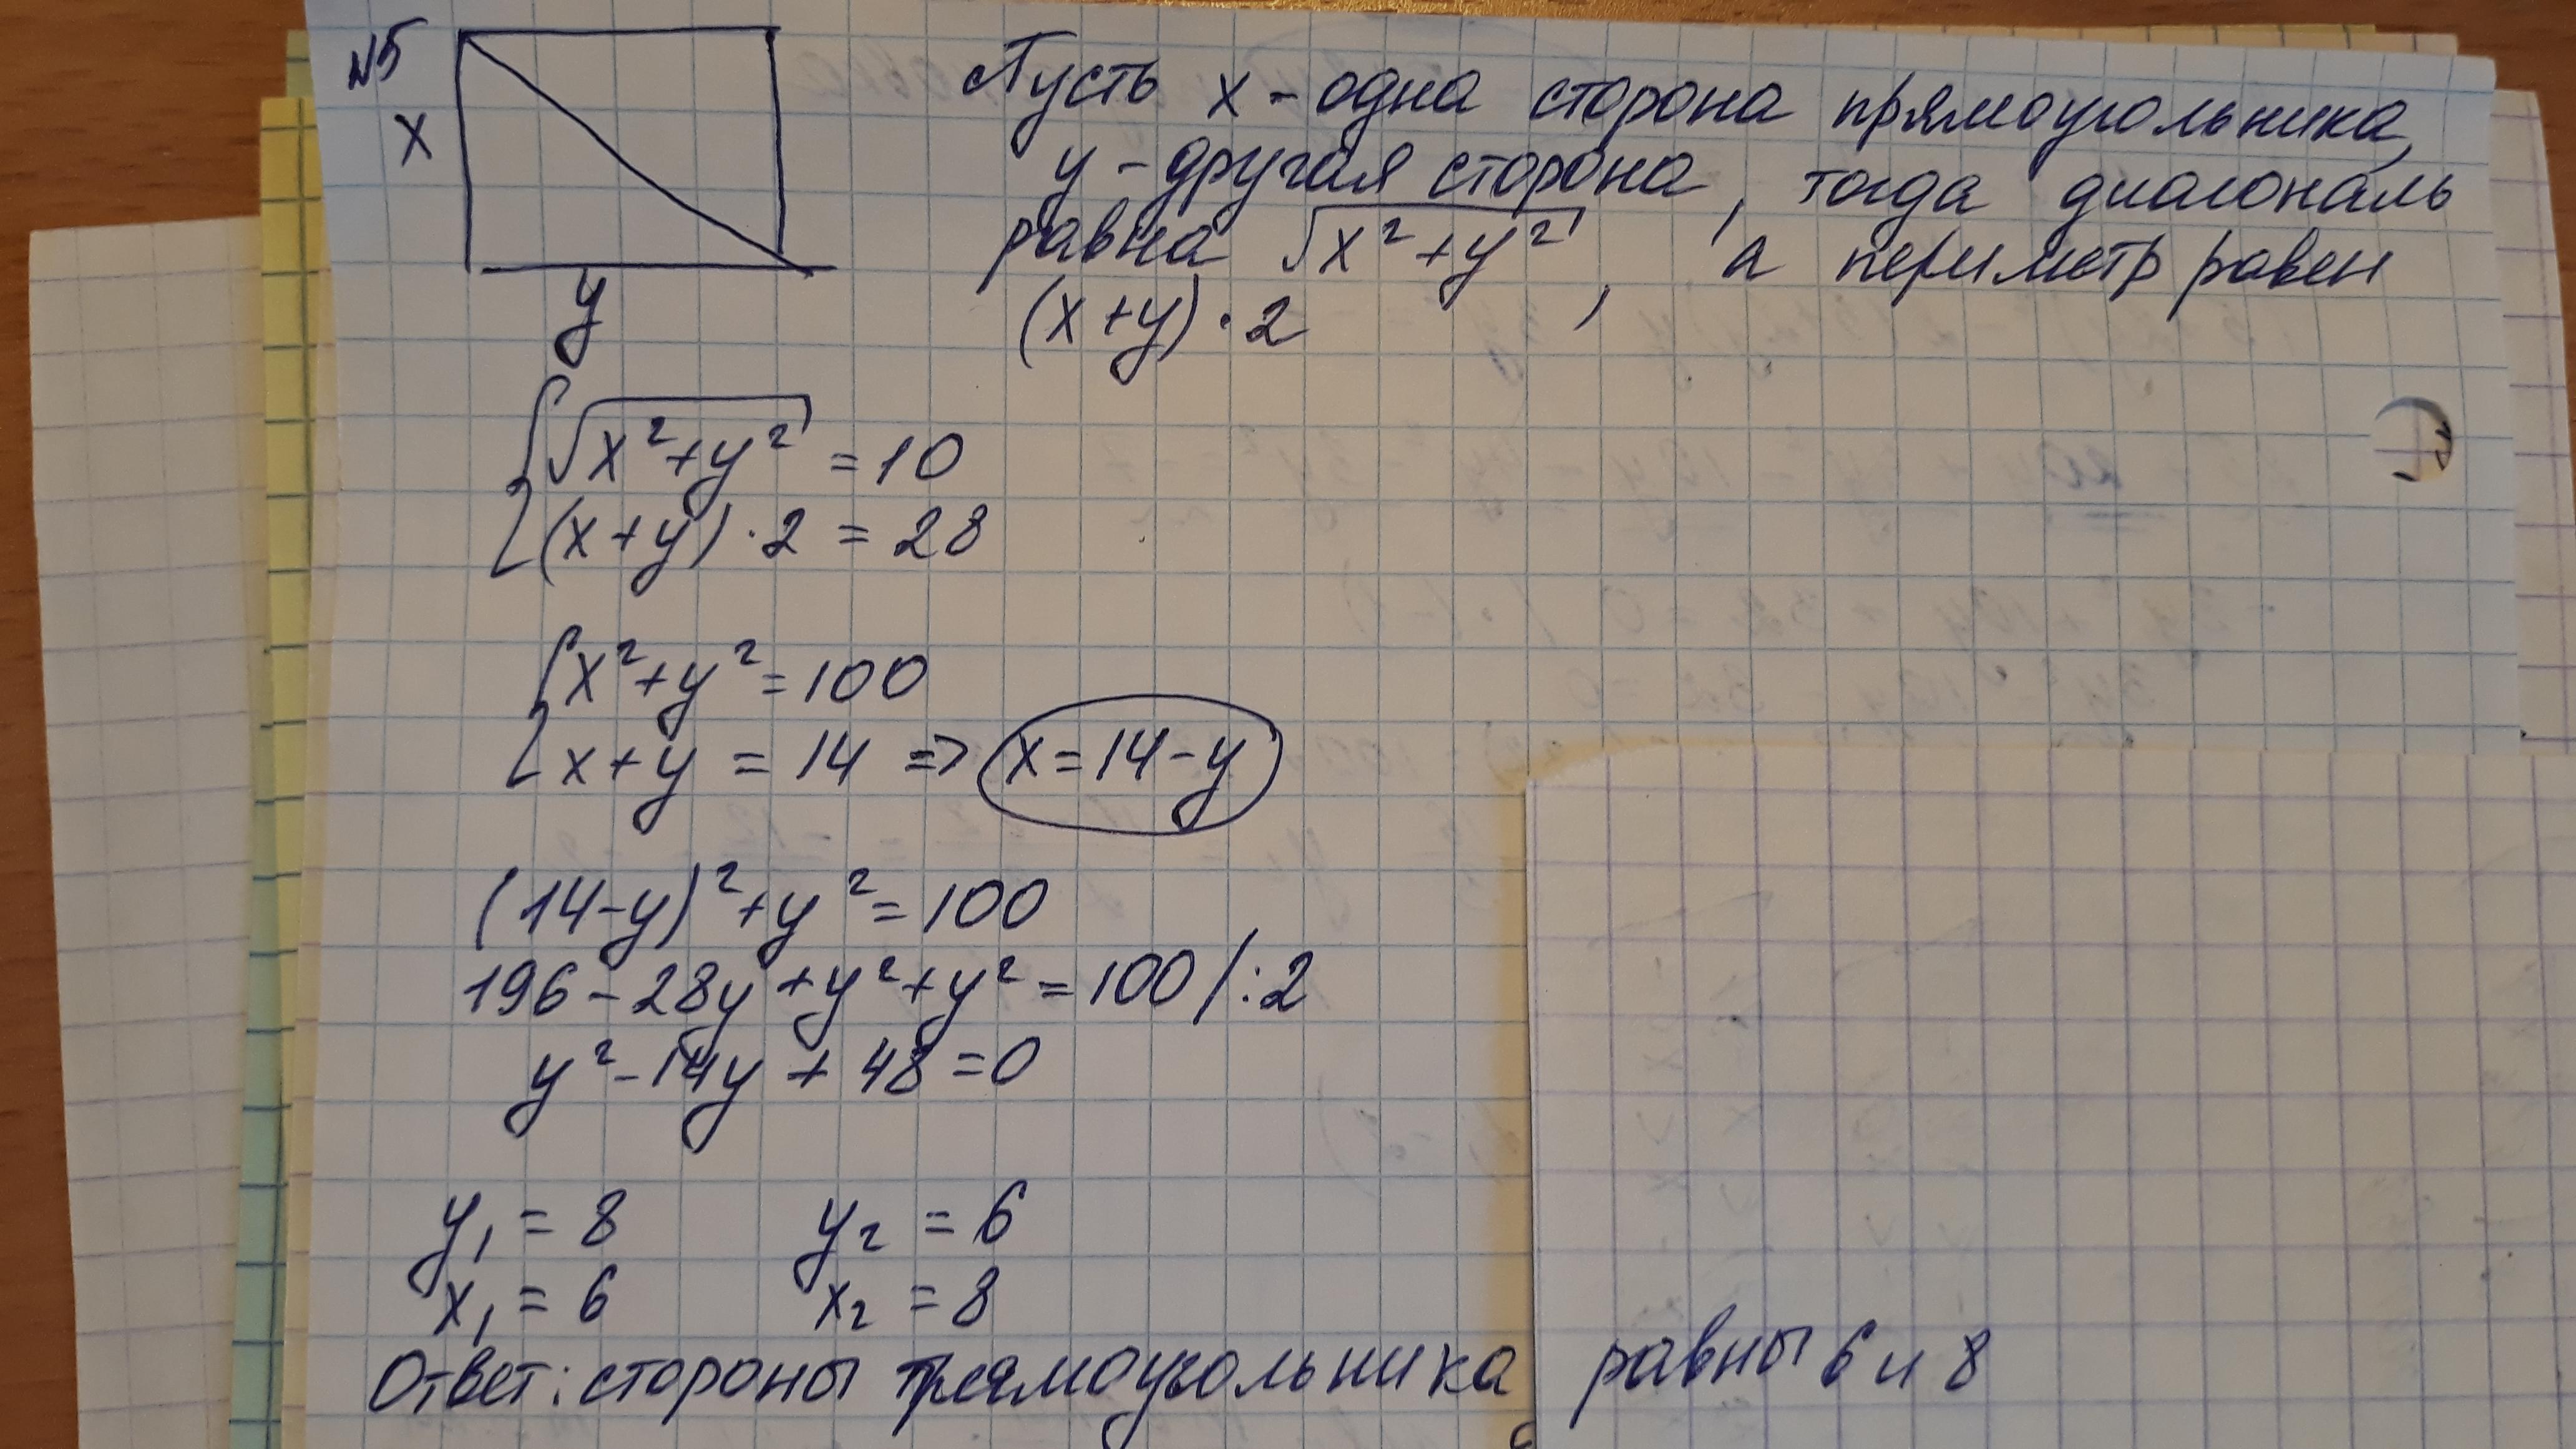 №5
x
y
Пусть x - одна сторона прямоугольника,
y - другая сторона, тогда диагональ
равна √(x²+y²), а периметр равен
(x+y)·2
{√(x²+y²) = 10
{(x+y)·2 = 28
{x²+y²=100
{x+y = 14 => x=14-y
(14-y)²+y²=100
196-28y+y²+y²=100 /:2
y²-14y+48=0
y₁ = 8 y₂ = 6
x₁ = 6 x₂ = 8
Ответ: стороны прямоугольника равны 6 и 8